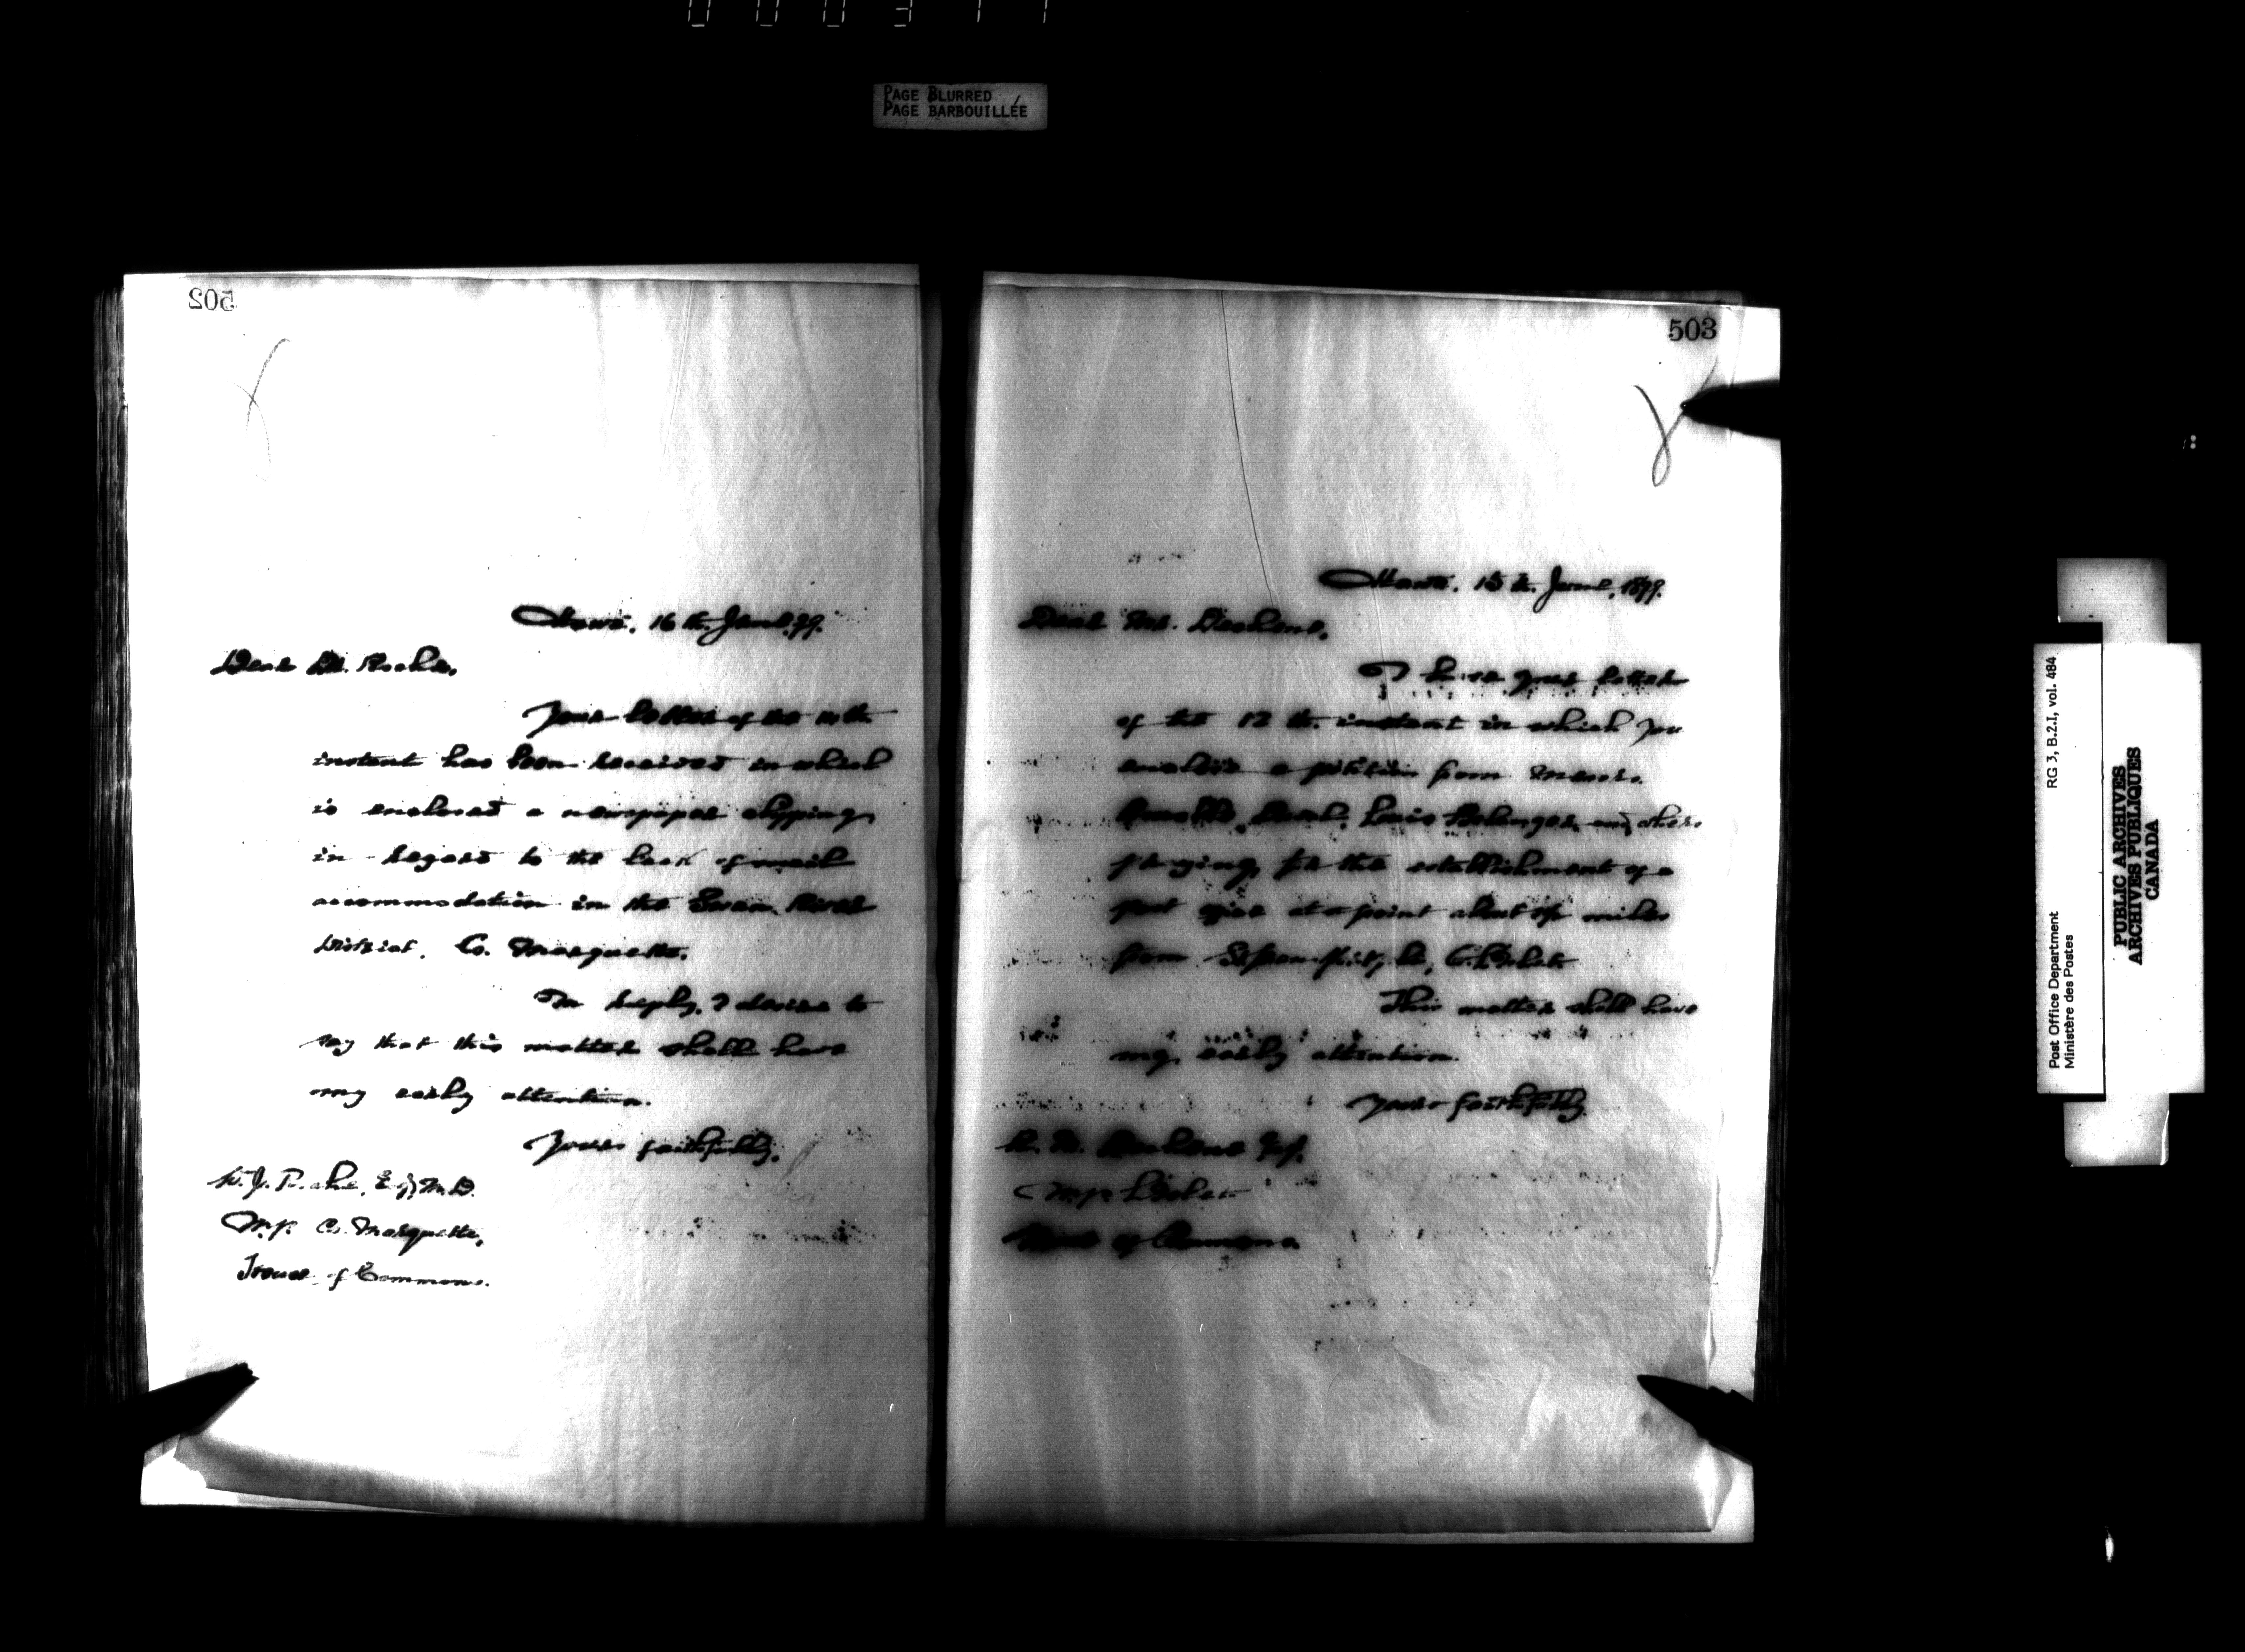 PAGE BLURRED
PAGE BARBOUILLÉE
502
Ottawa, 16 th. June, 99.
Dear Dr. Roche,
Your letter of the 14 th.
instant has been received in which
is enclosed a newspaper clipping
in regard to the lack of mail
accommodation in the Swan River
District, Co. Marquette.
In reply, I desire to
say that this matter shall have
my early attention.
Yours faithfully,
W. J. Roche, Esq, M.D.
M.P. Co. Marquette,
House of Commons.
503
Ottawa, 15 th. June, 1899.
Dear Mr.
I have your letter
of the 12 th. instant in which you
enclose a petition from Messrs.
Louis Belanger and others
praying for the establishment of a
post office at a point about miles
from
This matter shall have
my early attention.
Yours faithfully,
Esq.
M.P. L'Islet
House of Commons.
Post Office Department
Ministère des Postes
RG 3, B.2.I, vol. 484
PUBLIC ARCHIVES
ARCHIVES PUBLIQUES
CANADA